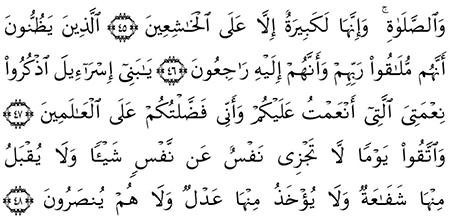 وَٱلصَّلَوٰةِۚ وَإِنَّهَا لَكَبِيرَةٌ إِلَّا عَلَى ٱلْخَـٰشِعِينَ ﴿٤٥﴾ ٱلَّذِينَ يَظُنُّونَ
أَنَّهُم مُّلَـٰقُوا۟ رَبِّهِمْ وَأَنَّهُمْ إِلَيْهِ رَٰجِعُونَ ﴿٤٦﴾ يَـٰبَنِىٓ إِسْرَٰٓءِيلَ ٱذْكُرُوا۟
نِعْمَتِىَ ٱلَّتِىٓ أَنْعَمْتُ عَلَيْكُمْ وَأَنِّى فَضَّلْتُكُمْ عَلَى ٱلْعَـٰلَمِينَ ﴿٤٧﴾
وَٱتَّقُوا۟ يَوْمًا لَّا تَجْزِى نَفْسٌ عَن نَّفْسٍ شَيْـًٔا وَلَا يُقْبَلُ
مِنْهَا شَفَـٰعَةٌ وَلَا يُؤْخَذُ مِنْهَا عَدْلٌ وَلَا هُمْ يُنصَرُونَ ﴿٤٨﴾